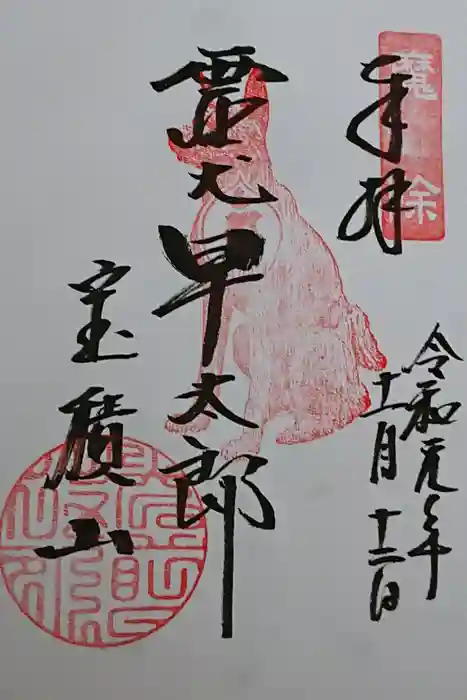 奉拝
魔除
令和元年
十一月十二日
霊犬早太郎
宝積山